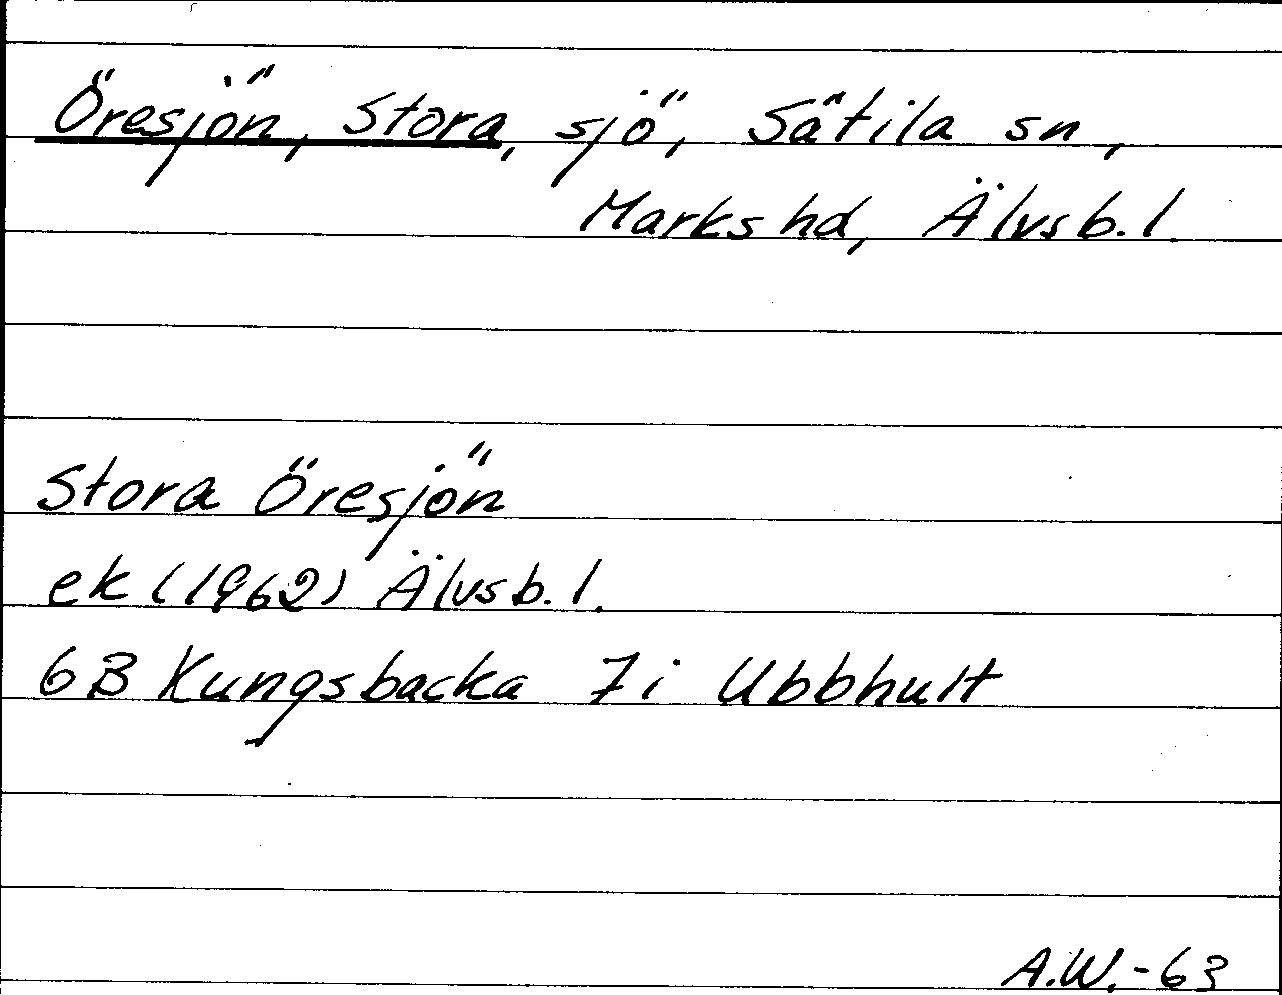 Öresjön, Stora, sjö, Sätila sn,
Marks hd, Älvsb. l
Stora Öresjön
ek (1962) Älvsb. l.
6B Kungsbacka 7i Ubbhult
A.W.-63